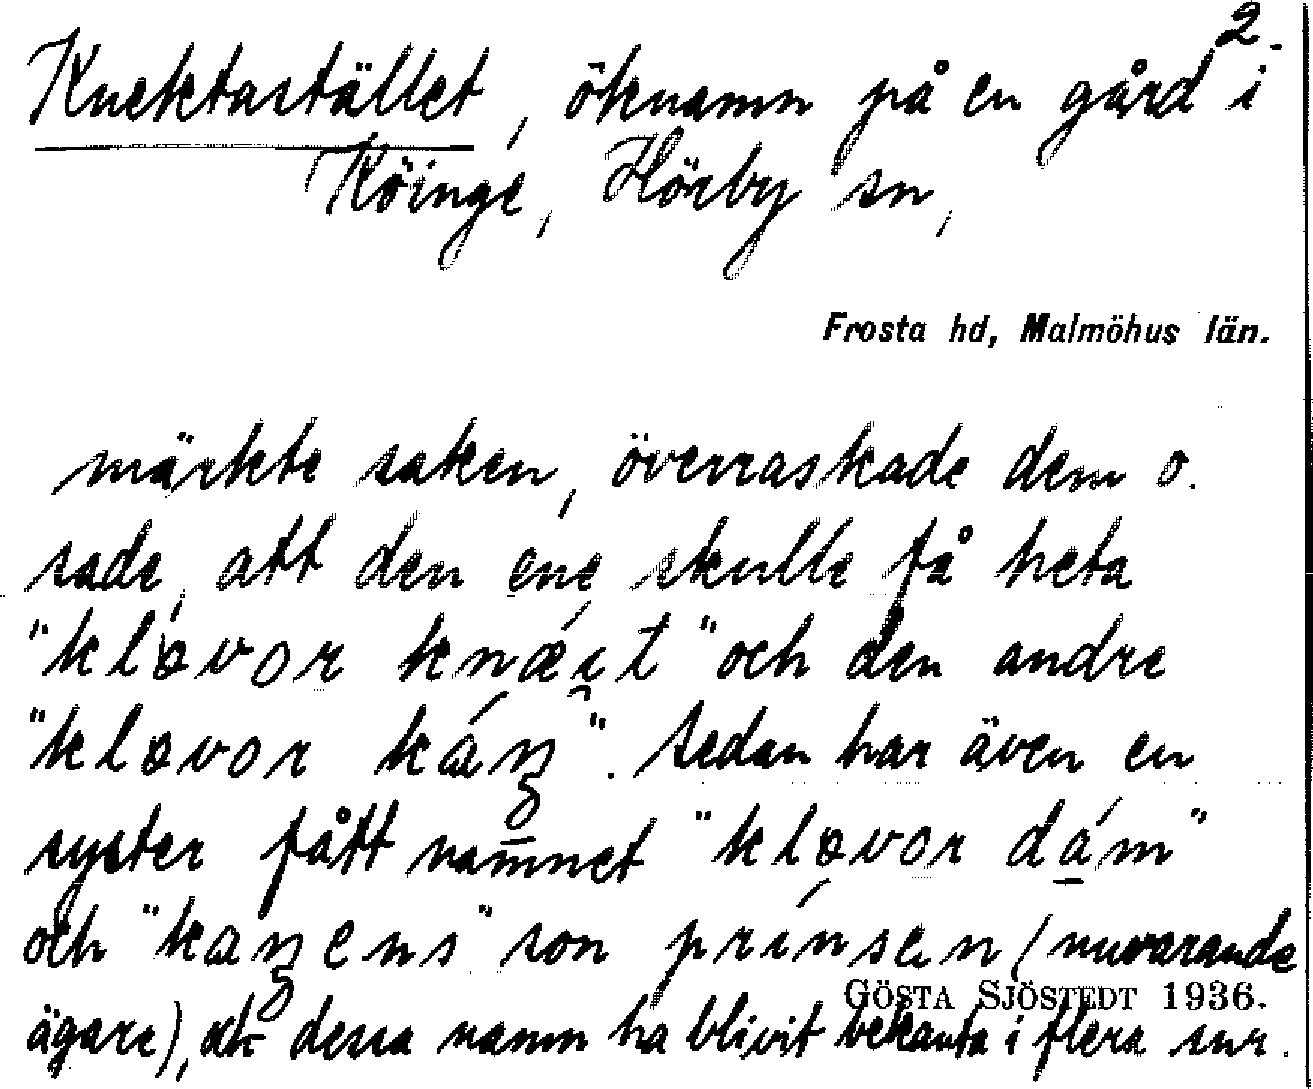 2.
Knektastället, öknamn på en gård i
Köinge, Hörby sn,
Frosta hd, Malmöhus län.
märkte saken, överraskade dem o.
sade, att den ene skulle få heta
"kløvor knæ̂it" och den andre
"kløvor káŋ". Sedan har även en
syster fått namnet "kløvor dám"
och "kaŋens" son prinsen (nuvarande
GÖSTA SJÖSTEDT 1936.
ägare), och dessa namn ha blivit bekanta i flera snr.